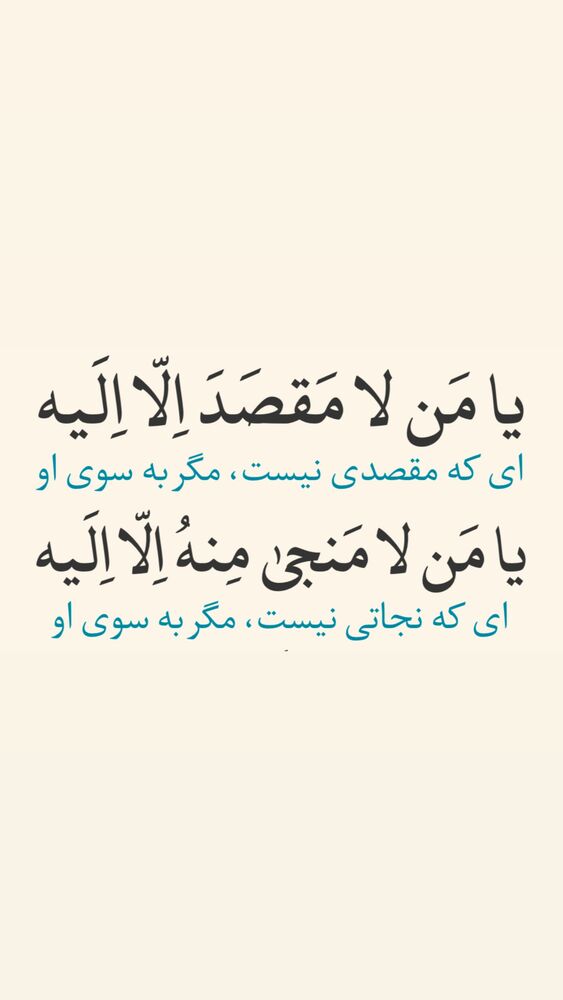 يا مَن لا مَقصَدَ اِلّا اِلَيه
ای که مقصدی نیست، مگر به سوی او
يا مَن لا مَنجىٰ مِنهُ اِلّا اِلَيه
ای که نجاتی نیست، مگر به سوی او